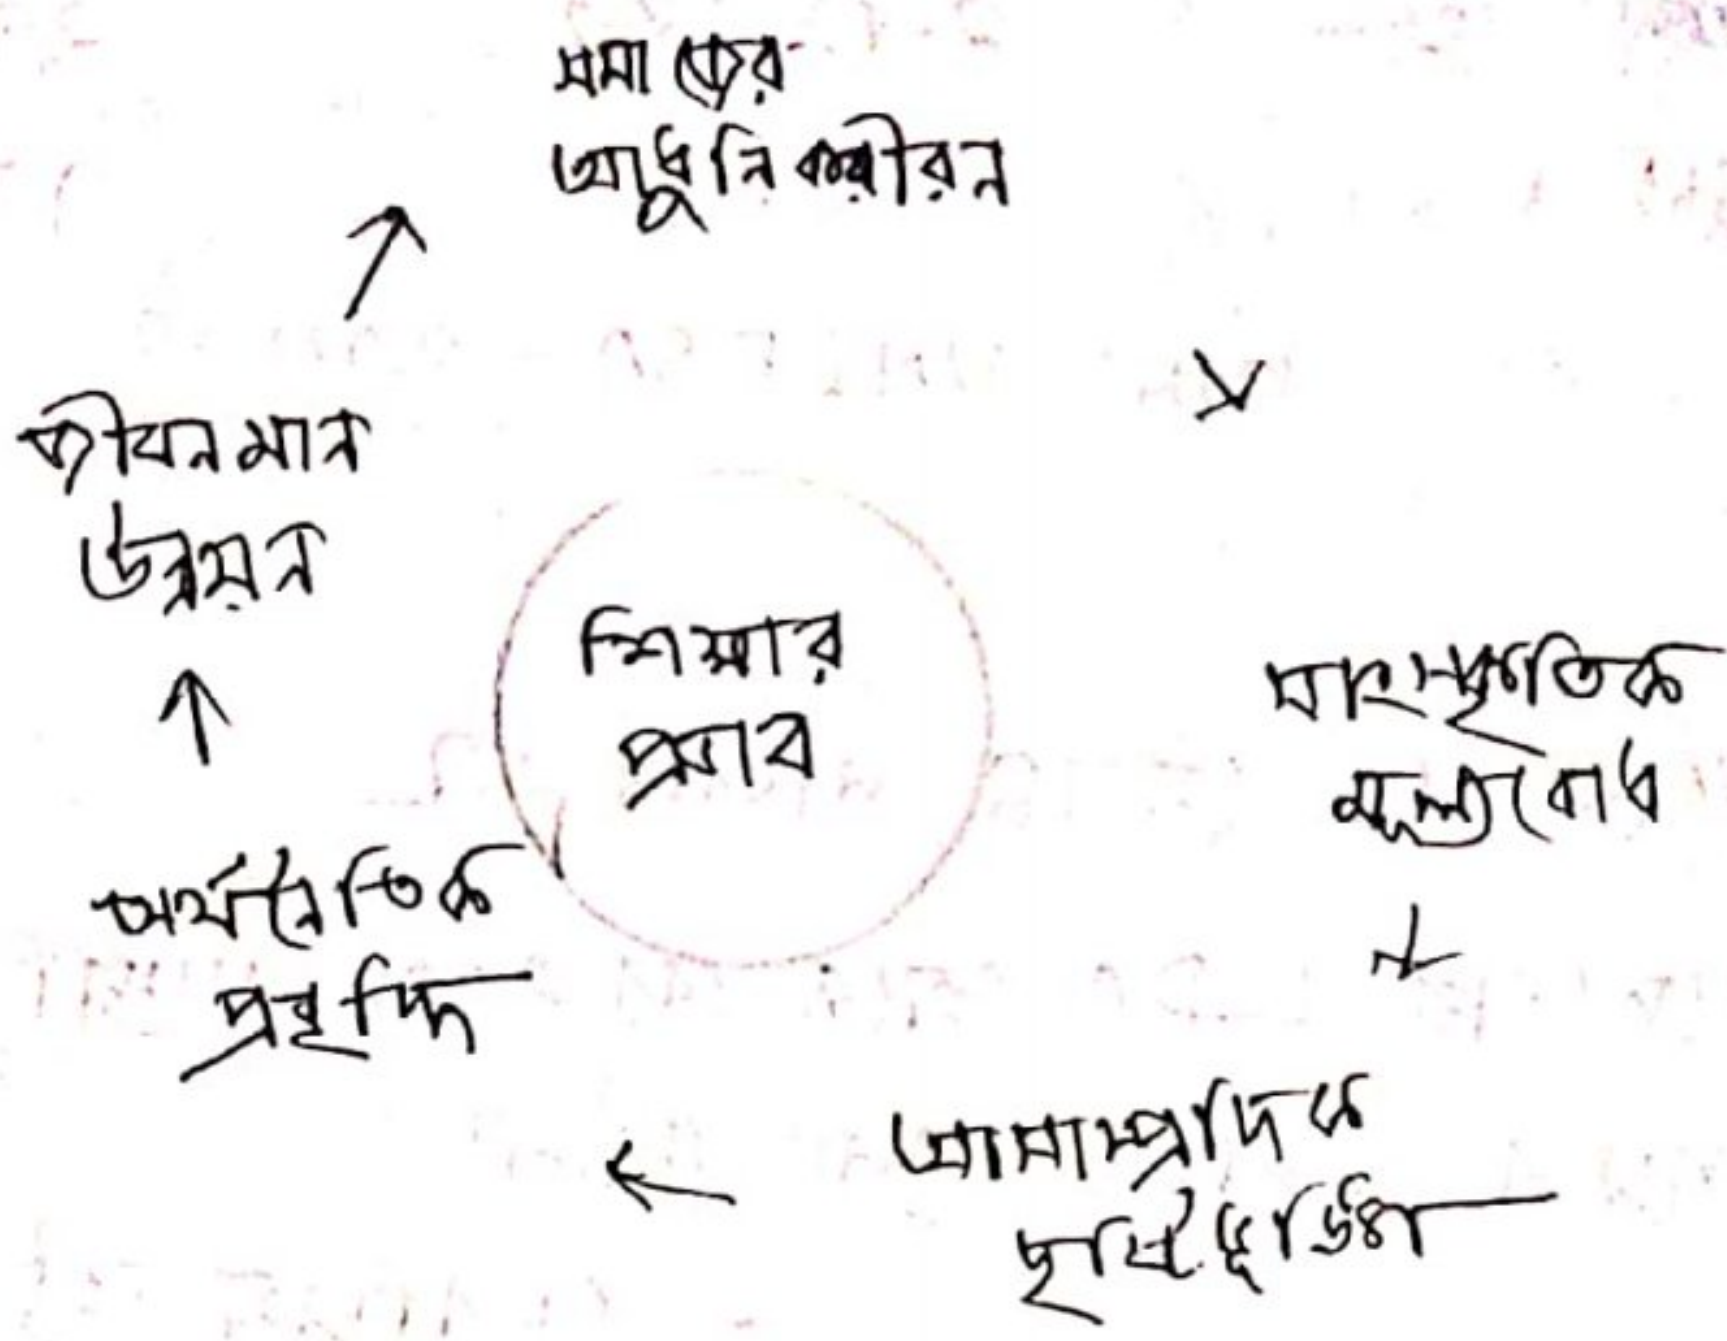 সমাজের
আধুনিকীরন
জীবনমান
উন্নয়ন
শিক্ষার
প্রভাব
সাংস্কৃতিক
মূল্যবোধ
অর্থনৈতিক
প্রবৃদ্ধি